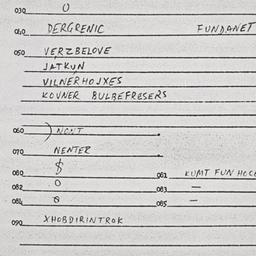 030 0
040 DERGRENIC FUNDANET
050 VERZBELOVE
JATKUN
VILNERHOJXES
KOVNER BULBEFRESERS
060 ) NONT
070 NENTER
$
080 0 081 KUMT FUN HOCE
082 0 083 —
084 0 085 —
090 XHOBDIRINTROK